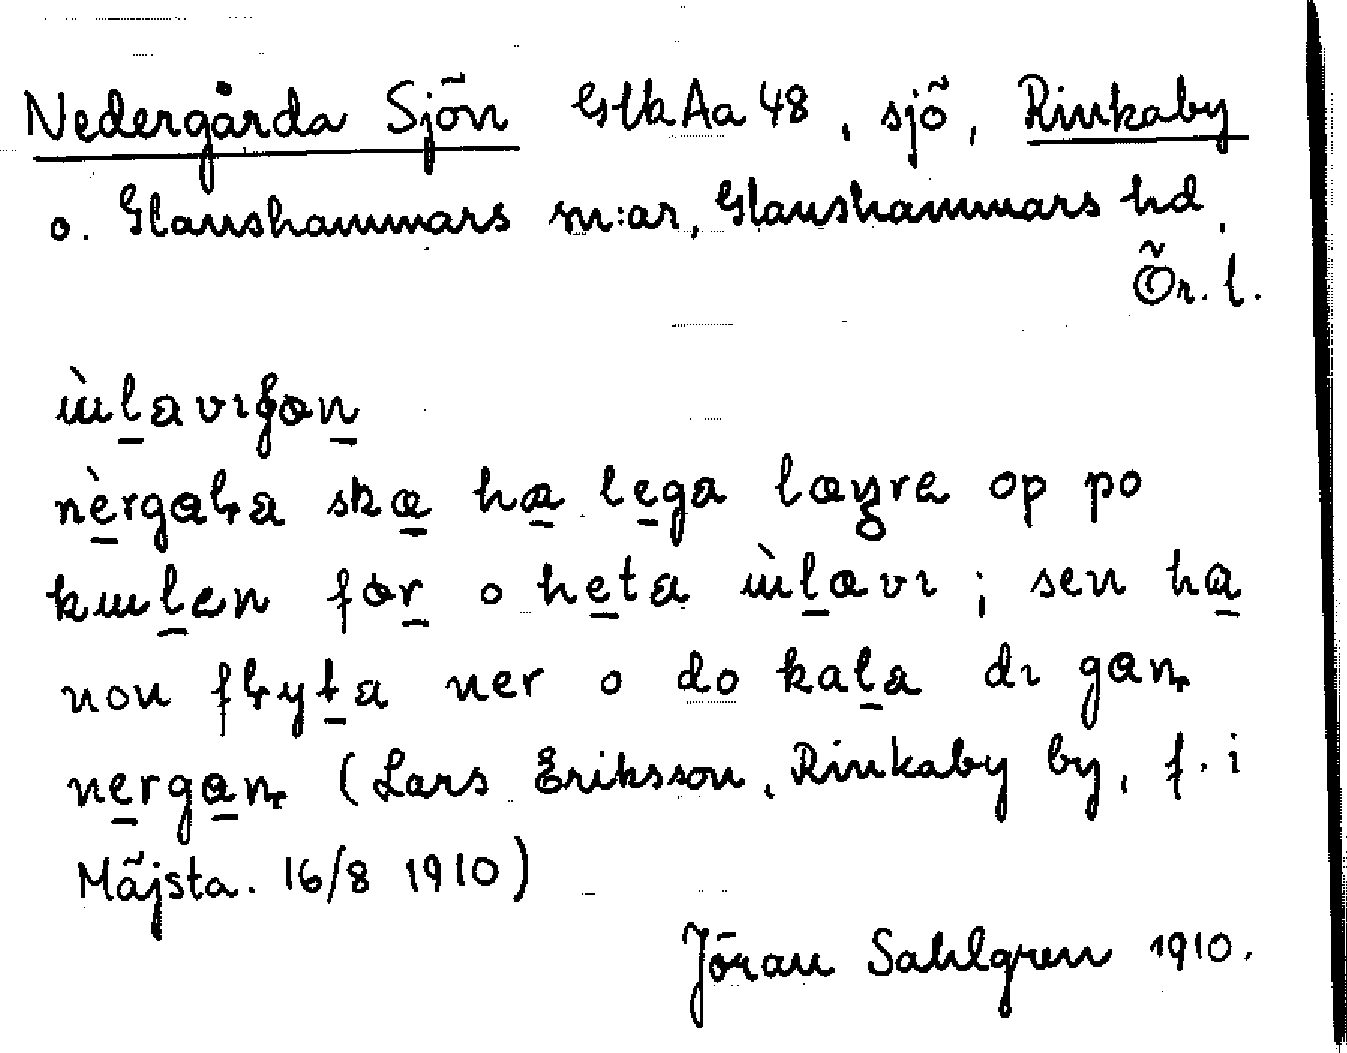 Nedergårda Sjön GtkAa 48, sjö, Rinkaby
o. Glanshammars sn:ar, Glanshammars hd.
Ör. l.
ùlavıʃon
nèrgaɽa ska ha lega lægre op po
kulen før o heta ùlavı; sen ha
non flyta ner o do kala dı gan
nergan (Lars Eriksson, Rinkaby by, f. i
Mäjsta. 16/8 1910)
Jöran Sahlgren 1910.